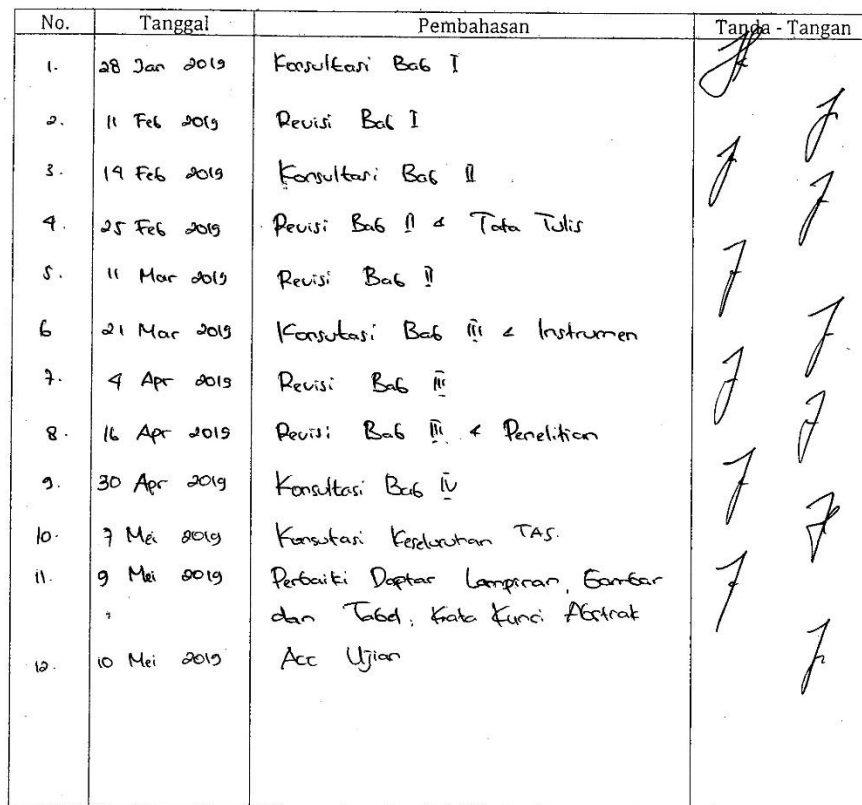 No. Tanggal Pembahasan Tanda - Tangan
1. 28 Jan 2019 Konsultasi Bab I
2. 11 Feb 2019 Revisi Bab I
3. 14 Feb 2019 Konsultasi Bab II
4. 25 Feb 2019 Revisi Bab II & Tata Tulis
5. 11 Mar 2019 Revisi Bab II
6 21 Mar 2019 Konsutasi Bab III & Instrumen
7. 4 Apr 2019 Revisi Bab III
8. 16 Apr 2019 Revisi Bab III & Penelitian
9. 30 Apr 2019 Konsultasi Bab IV
10. 7 Mei 2019 Konsutasi Keseluruhan TAS.
11. 9 Mei 2019 Perbaiki Daptar Lampiran, Gambar
dan Tabel, Kata Kunci Abstrak
12. 10 Mei 2019 Acc Ujian